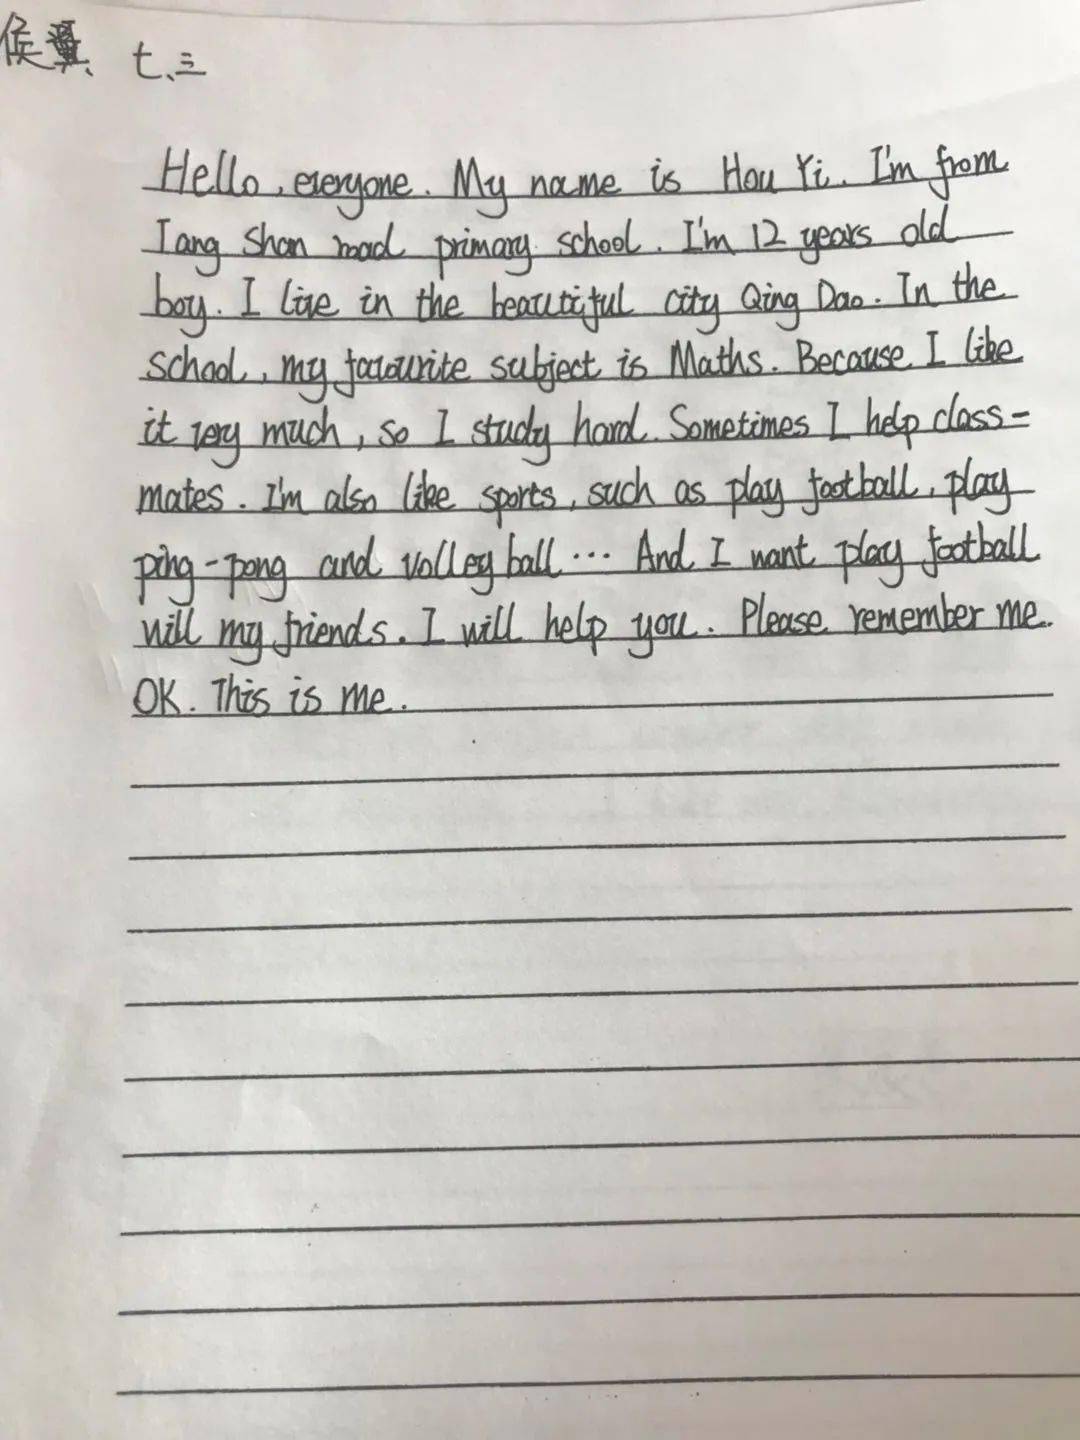 侯翼 七、三
Hello, everyone. My name is Hou Yi. I'm from
Tang Shan road primary school. I'm 12 years old
boy. I live in the beautiful city Qing Dao. In the
school, my favourite subject is Maths. Because I like
it very much, so I study hard. Sometimes I help class-
mates. I'm also like sports, such as play football, play
ping-pong and volleyball... And I want play football
will my friends. I will help you. Please remember me.
OK. This is me.